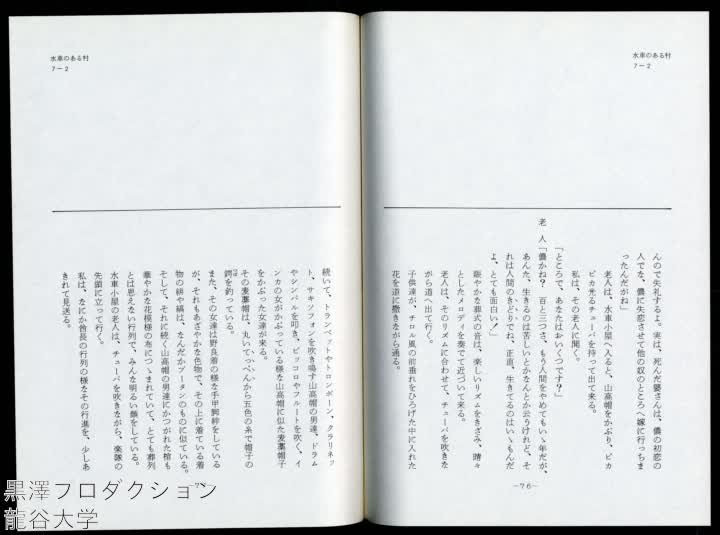 水車のある村
7-2
んので失礼するよ。実は、死んだ婆さんは、儂の初恋の
人でな、儂に失恋させて他の奴のところへ嫁に行っちま
ったんだがね」
老人は、水車小屋へ入ると、山高帽をかぶり、ピカ
ピカ光るチューバを持って出て来る。
私は、その老人に聞く。
「ところで、あなたはおいくつです?」
老人「儂かね? 百と三つさ、もう人間をやめてもいゝ年だが、
あんた、生きるのは苦しいとかなんとか云うけれど、そ
れは人間のきどりでね、正直、生きてるのはいゝもんだ
よ、とても面白い!」
賑やかな葬式の音は、楽しいリズムをきざみ、晴々
としたメロディを奏でて近づいて来る。
老人は、そのリズムに合わせて、チューバを吹きな
がら道へ出て行く。
子供達が、チロル風の前垂れをひろげた中に入れた
花を道に撒きながら通る。
-76-
水車のある村
7-2
続いて、トランペットやトロンボーン、クラリネッ
ト、サキソフォンを吹き鳴す山高帽の男達、ドラム
やシンバルを叩き、ピッコロやフルートを吹く、イ
ンカの女がかぶっている様な山高帽に似た麦藁帽子
をかぶった女達が来る。
その麦藁帽は、丸いてっぺんから五色の糸で帽子の
鍔を釣っている。
また、その女達は野良着の様な手甲脚絆をしている
が、それもあざやかな色物で、その上に着ている着
物の絣や縞は、なんだかブータンのものに似ている。
そして、それに続く山高帽の男達にかつがれた棺も
華やかな花模様の布につゝまれていて、とても葬列
とは思えない行列で、みんな明るい顔をしている。
水車小屋の老人は、チューバを吹きながら、楽隊の
先頭に立って行く。
私は、なにか酋長の行列の様なその行進を、少しあ
きれて見送る。
黒澤プロダクション
龍谷大学